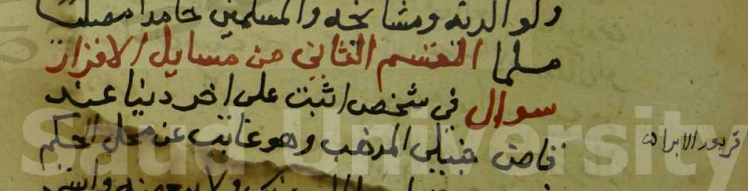 ولوالديه ومشايخه والمسلمين حامدا مصليا
مسلما القسم الثاني من مسايل الاقرار
سوال في شخص اثبت على اخر دينا عند
قاضي حنبلي المذهب وهو غايب عن محل الحكم
Saud University